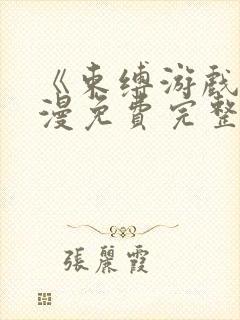 《束缚游戏
漫免費完整
張麗霞